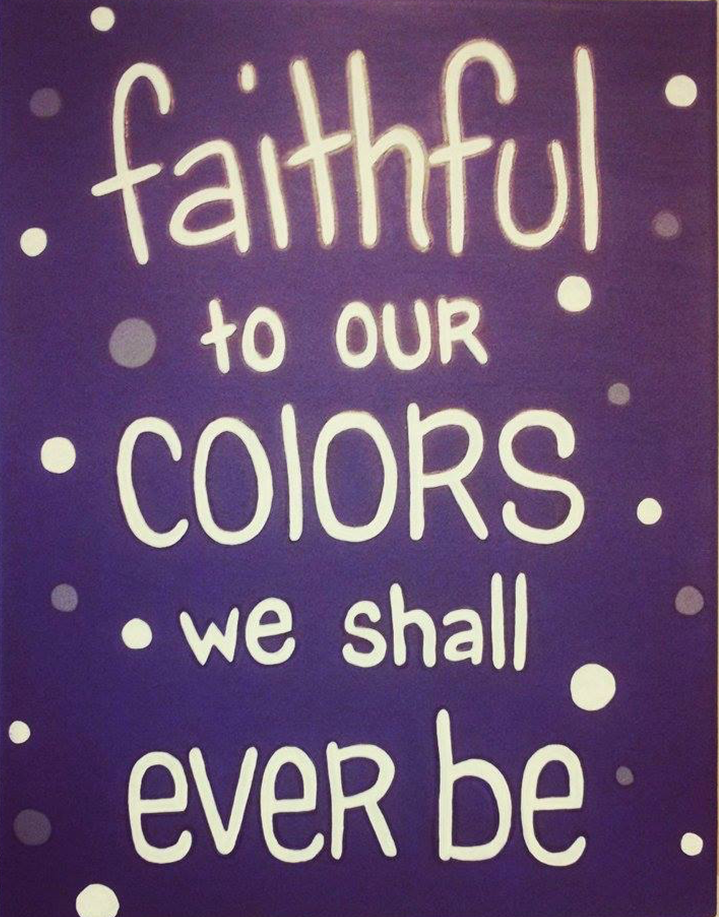 faithful
to our
colors
we shall
ever be